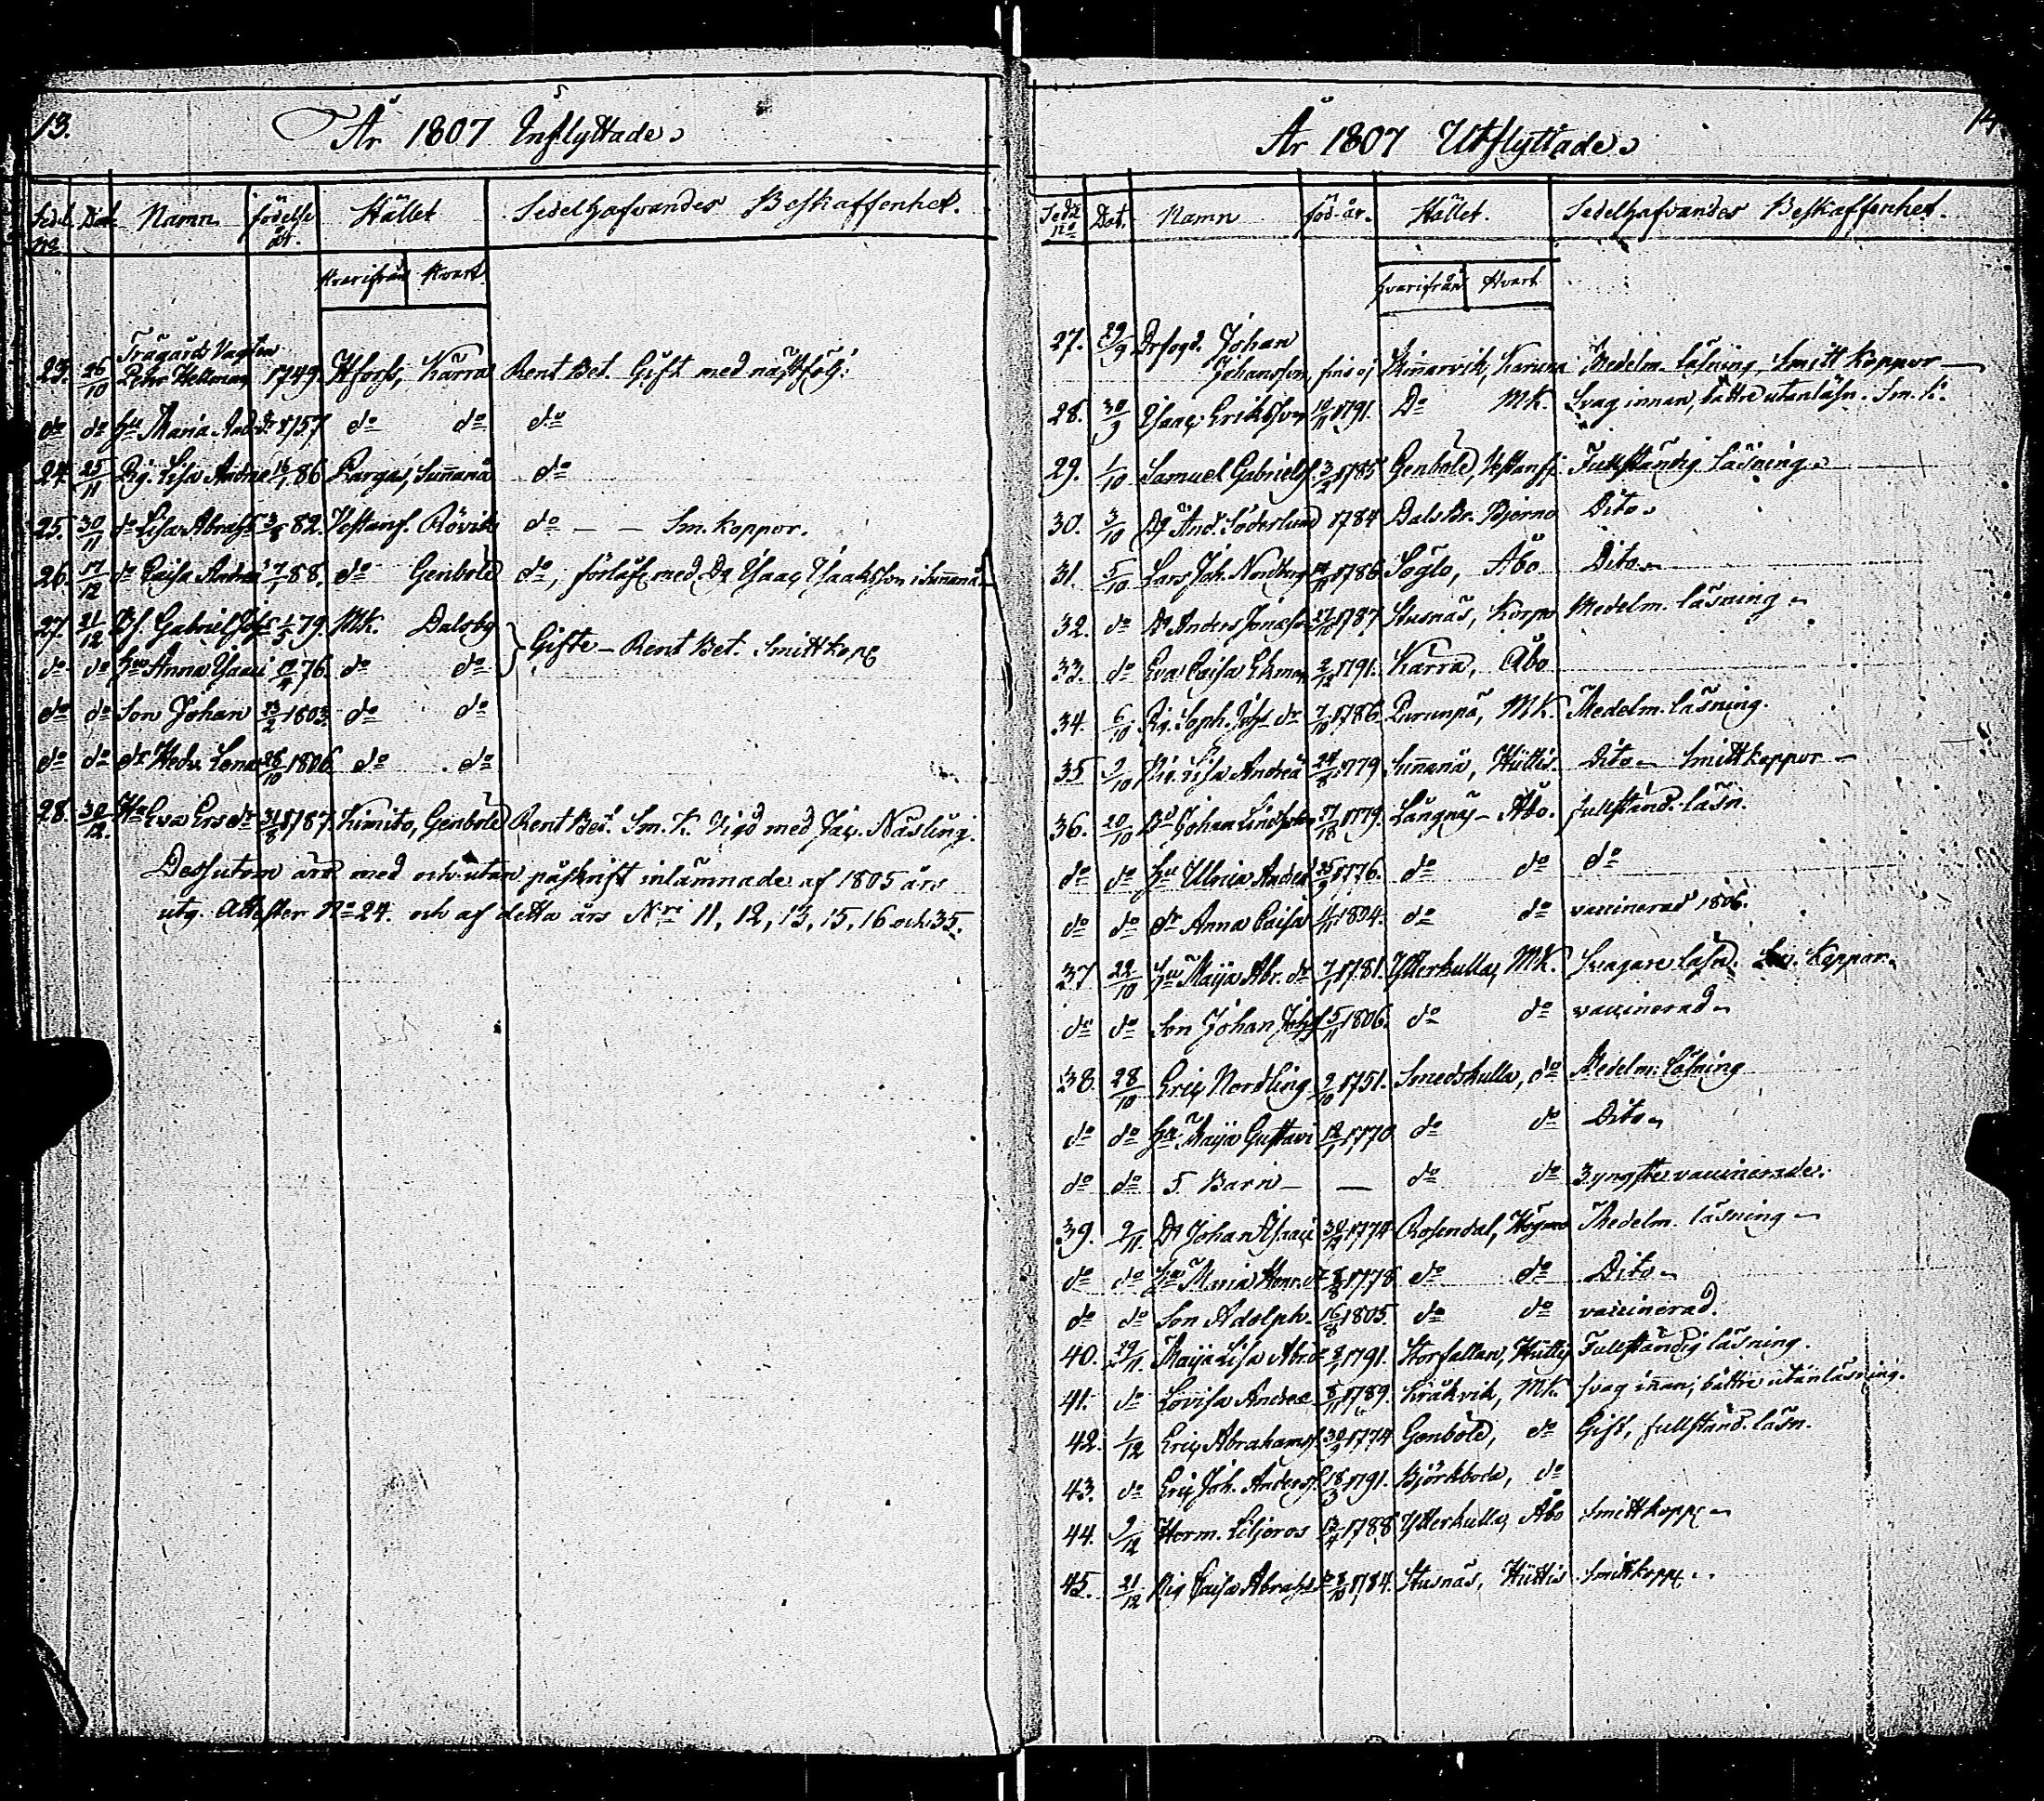 13.
År 1807 Inflyttade.
Sedel No Dat. Namn födelse år. Stället Sedelhafvandes Beskaffenhet.
Hvarifrån Hvart
Trägårds Vagten
23. 26/10 Petr Hellman 1749. Hfors, Kärra Rent Bet. Gift med nästfölj:
do do Hu Maria And. dr 1757 do do do
24. 25/11 Pig. Lisa Andrae 16/1 86 Pargas, Sunnanå do
25. 30/11 do Lisa Abrahs 3/8 82. Vestanf. Rövik do — — Sm. koppor.
26. 17/12 do Caisa Andrae 7/1 88. do Genböle do, förlofv. med Dr Isaac Isaaksson i Sunnanå
27. 21/12 Bf. Gabriel Johs 1/5 79. MK. Dalsby Gifte — Rent Bet. Smittkopp
do do Hu Anna Isaac 12/4 76. do do
do do Son Johan 23/2 1803. do do
do do dr Hedv. Lena 28/10 1806. do do
28. 30/12. Hu Eva Ers dr 31/8 1787. Kimito, Genböle Rent Bet. Sm. K. Vigd med Jac. Näsling.
Dessutom äro med och utan påskrift inlämnade af 1805 års
utg. Attester No 24. och af detta års Nri 11, 12, 13, 15, 16 och 35.
14
År 1807 Utflyttade.
Sedel No Dat. Namn föd. år. Stället. Sedelhafvandes Beskaffenhet.
hvarifrån Hvart
27. 29/9 Drfogd. Johan
Johansson, Skinnarvik, Karuna Medelm. läsning, Smitt koppor —
28. 30/9 Isaac Eriksson 10/11 1791. Do MK. Svag innan, bättre utanläsn. Sm. k.
29. 1/10 Samuel Gabriels. 3/2 1785 Genböle, Vestanf. Fullständig läsning.
30. 3/10 Dr And. Söderlund 1784 Dals Br. Bjerno Dito.
31. 5/10 Lars Joh. Nordberg 1786 Söglo, Åbo Dito.
32. do Dr Anders Jonass. 27/10 1787 Stusnäs, Korpo Medelm. läsning
33. do Eva Caisa Ekman 2/12 1791. Kärra, Åbo
34. 6/10 Pig. Soph. Johs dr 7/10 1786. Purunpä, MK. Medelm. läsning.
35 9/10 Pig. Lisa Andrae 24/2 1779 Sunnanå, Hüttis. Dito Smittkoppor —
36. 20/10 Johan Lindholm 1779. Långnäs — Åbo. fullständ. läsn.
do do Hu Ulrica Anders 25/2 1776. do do do
do do dr Anna Caisa 1/11 1804. do do vaccinerad 1806.
37 22/10 Hu Maija Abr. dr 7/1 1781. Ytterkulla, MK. Svagare läsn. Koppor.
do do Son Johan Johs 5/11 1806. do do vaccinerad
38. 28/10 Eric Nordling 9/10 1751. Smedskulla, do Medelm. läsning
do do Hu Maija Gustavi 12/1 1770 do do Dito
do do 5 Barn — — do do 3 yngste vaccinerade.
39. 2/11. Dr Johan Isaac 30/12 1774 Rosendal, Högmo Medelm. läsning
do do Hu Maria Henr. dr 8/8 1778 do do Dito
do do Son Adolph. 16/8 1805. do do vaccinerad.
40. 29/11. Maija Lisa Abr. dr 8/1 1791. Storfallan, Hüttis Fullständig läsning.
41. do Lovisa Andrae 8/11 1789. Kråkvik, MK. svag innan, bättre utanläsning.
42. 1/12 Eric Abrahams. 30/9 1774 Genböle, do Gift, fullständ. läsn.
43. do Eric Joh. Anderss. 18/3 1791. Björkboda, do
44. 9/12 Herm. Liljeros 13/4 1788 Ytterkulla, Åbo Smittkopp
45. 21/12 Pig Caisa Abrahs dr 8/10 1784. Stusnäs, Hüttis Smittkopp